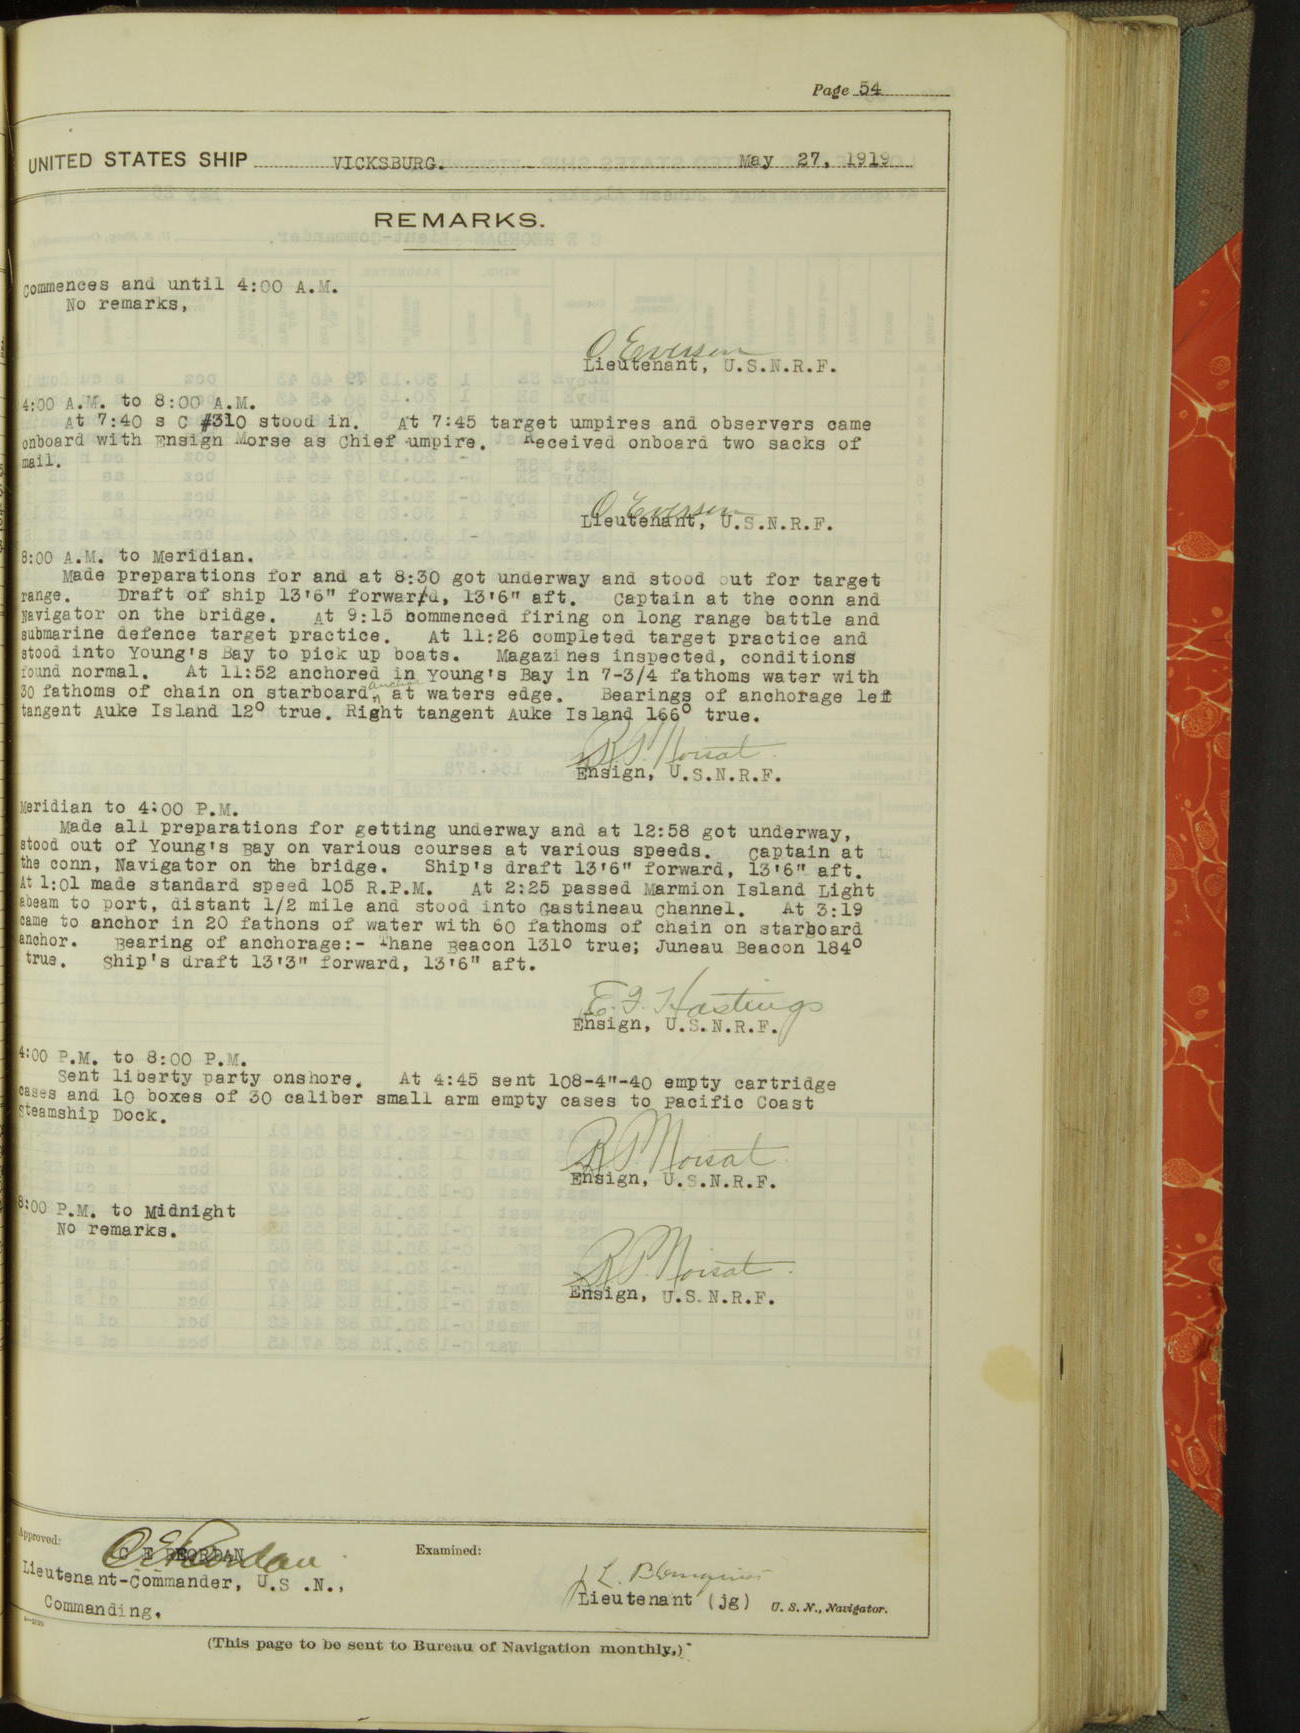 Page 54
UNITED STATES SHIP VICKSBURG. May 27, 1919
REMARKS.
Commences and until 4:00 A.M.
No remarks,
O Eversen
Lieutenant, U.S.N.R.F.
4:00 A.M. to 8:00 A.M.
At 7:40 s C #310 stood in. At 7:45 target umpires and observers came
onboard with Ensign Morse as Chief umpire. Received onboard two sacks of
mail.
O Eversen
Lieutenant, U.S.N.R.F.
8:00 A.M. to Meridian.
Made preparations for and at 8:30 got underway and stood out for target
range. Draft of ship 13'6" forward, 13'6" aft. Captain at the conn and
Navigator on the bridge. At 9:15 commenced firing on long range battle and
submarine defence target practice. At 11:26 completed target practice and
stood into Young's Bay to pick up boats. Magazines inspected, conditions
found normal. At 11:52 anchored in Young's Bay in 7-3/4 fathoms water with
30 fathoms of chain on starboard, anchor at waters edge. Bearings of anchorage left
tangent Auke Island 12° true. Right tangent Auke Island 166° true.
R.P. Noisat
Ensign, U.S.N.R.F.
Meridian to 4:00 P.M.
Made all preparations for getting underway and at 12:58 got underway,
stood out of Young's Bay on various courses at various speeds. Captain at
the conn, Navigator on the bridge. Ship's draft 13'6" forward, 13'6" aft.
At 1:01 made standard speed 105 R.P.M. At 2:25 passed Marmion Island Light
abeam to port, distant 1/2 mile and stood into Gastineau Channel. At 3:19
came to anchor in 20 fathons of water with 60 fathoms of chain on starboard
anchor. Bearing of anchorage:- Thane Beacon 131° true; Juneau Beacon 184°
true. Ship's draft 13'3" forward, 13'6" aft.
E. F. Hastings
Ensign, U.S.N.R.F.
4:00 P.M. to 8:00 P.M.
Sent liberty party onshore. At 4:45 sent 108-4"-40 empty cartridge
cases and 10 boxes of 30 caliber small arm empty cases to Pacific Coast
Steamship Dock.
R.P. Noisat
Ensign, U.S.N.R.F.
8:00 P.M. to Midnight
No remarks.
R.P. Noisat
Ensign, U.S.N.R.F.
Approved:
C E REORDAN
Lieutenant-Commander, U.S.N.,
Commanding.
Examined:
Lieutenant (jg) U. S. N., Navigator.
(This page to be sent to Bureau of Navigation monthly.)